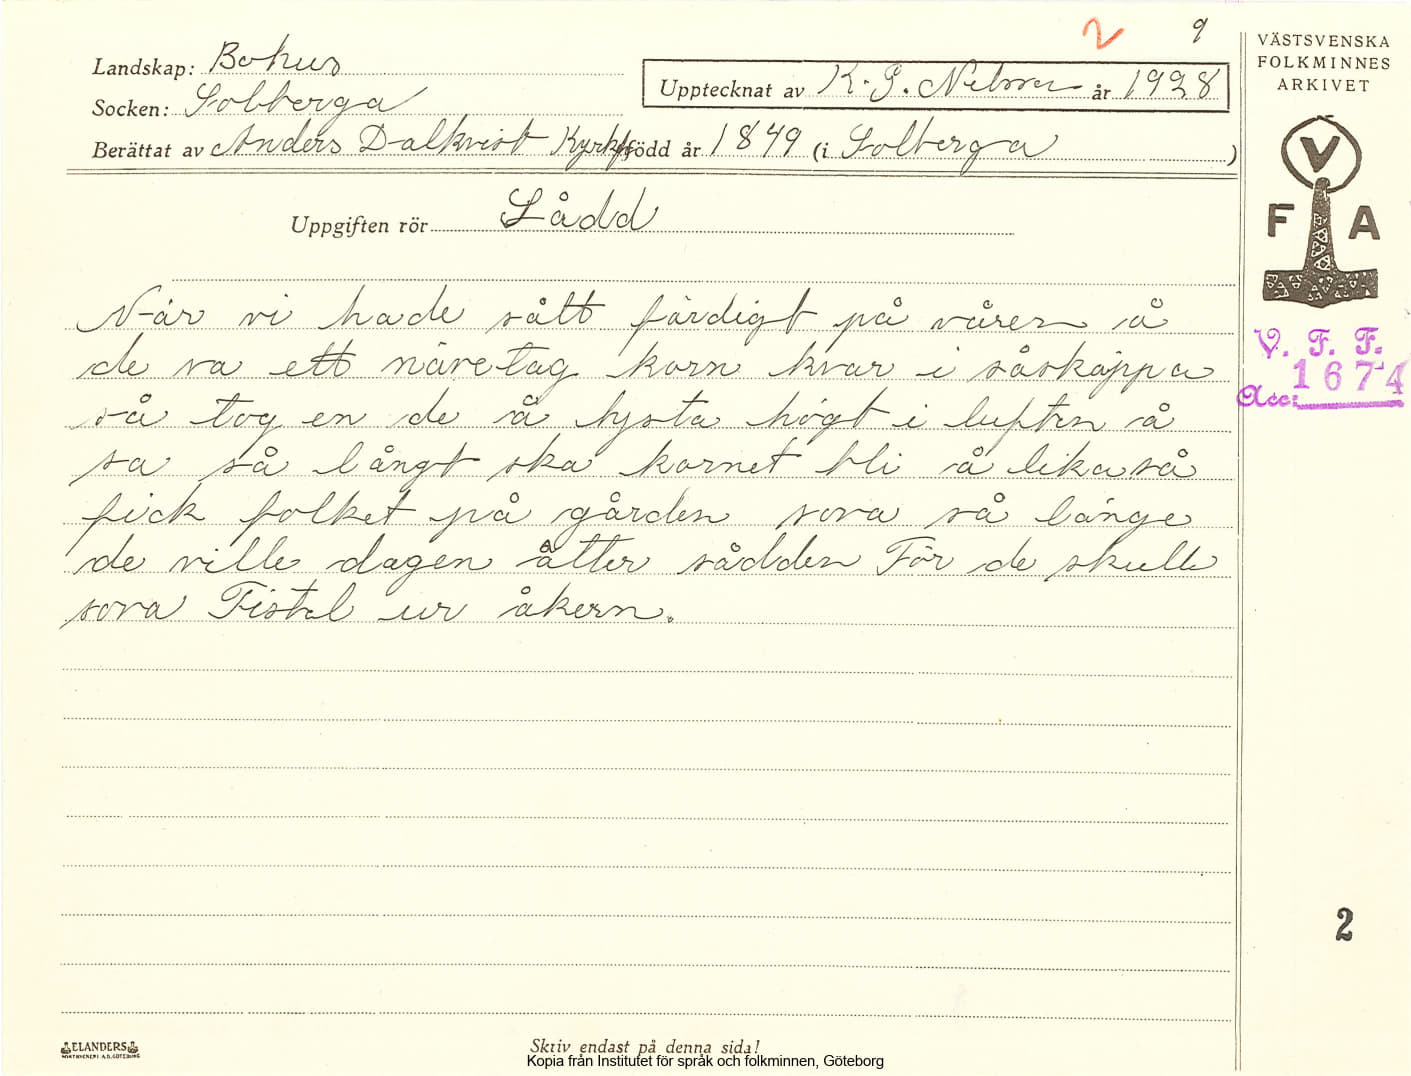 2 9
Landskap: Bohus
Socken: Solberga
Upptecknat av K. P. Nilsson år 1928
Berättat av Anders Dalkvist Kyrkv född år 1849 (i Solberga )
Uppgiften rör Sådd
När vi hade sått färdigt på våren å
de va ett nävetag korn kvar i såskäppa
så tog en de å hysta högt i luften å
sa så långt ska kornet bli å lika så
fick folket på gården sova så länge
de ville dagen åtter sådden För de skulle
sova Tistel ur åkern.
VÄSTSVENSKA
FOLKMINNES
ARKIVET
V
F A
V. F. F.
Acc: 1674
2
ELANDERS
Skriv endast på denna sida!
Kopia från Institutet för språk och folkminnen, Göteborg